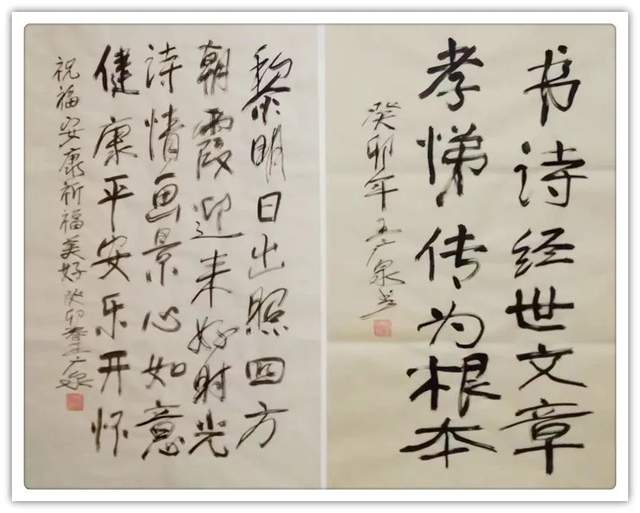 书诗经世文章
孝悌传为根本
癸卯年王广泉书
黎明日出照四方
朝霞迎来好时光
诗情画景心如意
健康平安乐开怀
祝福安康祈福美好癸卯春王广泉